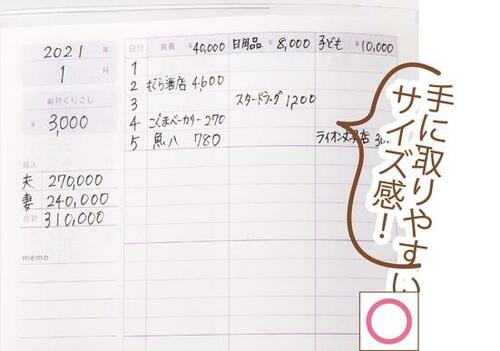 2021 年
1 月
前月くりこし
¥ 3,000
収入
夫 270,000
妻 240,000
合計 310,000
memo
日付 食費 ¥40,000 日用品 ¥8,000 子ども ¥10,000
1
2 さくら酒店 4.600
3 スタードラッグ 1200
4 こぐまベーカリー 270
5 魚八 780 ライオン文具店
手に取りやすい
サイズ感!